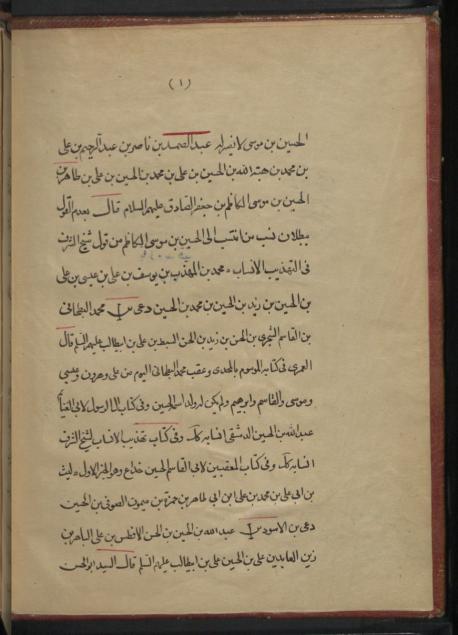 (١)
الحسين بن موسى لا نيسابر عبد الصمد بن ناصر بن عبد الرحيم بن على
بن محمد بن هبة الله بن الحسين بن على بن محمد بن الحسين بن على بن طاهر بن
الحسين بن موسى الكاظم بن جعفر الصادق عليهم السلام قال بعدم القول
ببطلان نسب من انتسب الى الحسين بن موسى الكاظم من قول شيخ الشرف
فى التهذيب الانساب محمد بن المهذب بن يوسف بن على بن عيسى بن على
بن الحسين بن زيد بن الحسين بن محمد بن الحسين دعى محمد البطحانى
بن القاسم الشجرى بن الحسن بن زيد بن الحسن السبط بن على بن ابيطالب عليهم السلم قال
العمرى فى كتابه الموسوم بالمجدى وعقب محمد البطحانى اليوم من على وهرون وعيسى
وموسى والقاسم وابرهيم ولم يكن له ولد اسمه الحسين وفى كتاب لابى الغنائم
عبد الله بن الحسين الدمشقى النسابه كذلك وفى كتاب تهذيب الانساب لشيخ الشرف
النسابه كذلك وفى كتاب المعقبين لابى القاسم الحسين خداع وهو الجزء الاول
بن ابى على بن محمد بن على ابن ابى طاهر بن حمزة بن ميمون الصوفى بن الحسين
دعى بن الاسود عبد الله بن الحسين بن الحسن الافطس بن على الباهر بن
زين العابدين على بن الحسين على بن ابيطالب عليهم السلم قال السيد ابو الحسن